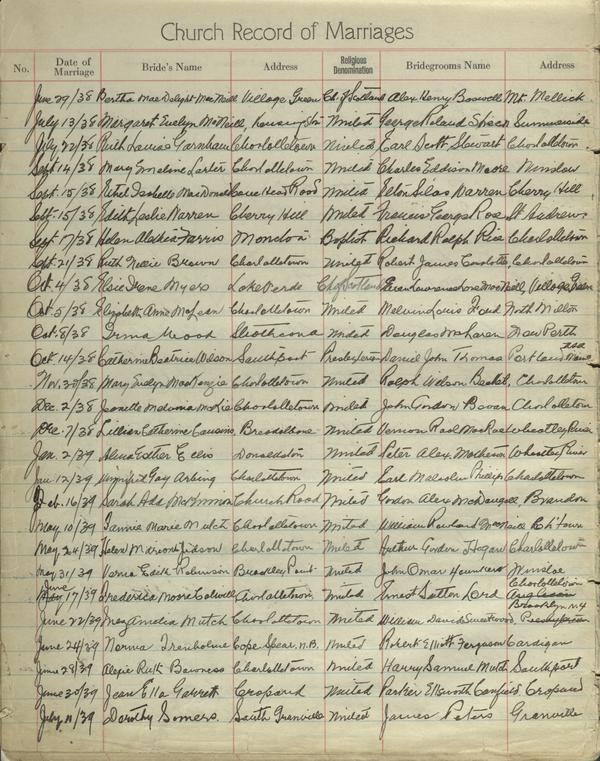 Church Record of Marriages
No. Date of Marriage Bride's Name Address Religious Denomination Bridegrooms Name Address
June 29/38 Bertha Mae Delight MacNeill Village Green Ch. of Scotland Alex. Henry Boswell Mt. Mellick
July 13/38 Margaret Evelyn McNeill United George Roland Summerside
July 22/38 Ruth Louise Farnham Charlottetown United Earl Scott Stewart Charlottetown
Sept 14/38 Mary Larter Charlottetown United Charles Eddison Moore Winsloe
Sept. 15/38 Ethel Isabelle MacDonald Road United Silas Warren Cherry Hill
Sept. 15/38 Edith Leslie Warren Cherry Hill United Francis George Rose St Andrews
Sept 17/38 Helen Farris Moncton Baptist Richard Ralph Rice Charlottetown
Sept. 21/38 Ruth Nellie Brown Charlottetown United Robert James Charlottetown
Oct. 4/38 Elsie Irene Myers Lake Verde Ch of Scotland Lawrence Village Green
Oct. 5/38 Elizabeth Anne McLean Charlottetown United Melvin Louis Ford North Milton
Oct. 8/38 Irma Wood Strathcona United Douglas McLaren New Perth
Oct. 14/38 Catherine Beatrice Wilson Southport Presbyterian Daniel John Thomas Portland Maine USA
Nov. 30/38 Mary Evelyn MacKenzie Charlottetown United Ralph Wilson Charlottetown
Dec. 2/38 Jeanette Charlottetown United John Gordon Charlottetown
Dec. 7/38 Lillian Catherine Breadalbane United Vernon MacRae Wheatley River
Jan. 2/39 Esther Ellis Donaldston United Peter Alex. Matheson Wheatley River
Jan. 12/39 Winnifred Gay Arbing Charlottetown United Earl Malcolm Phillips Charlottetown
Feb. 16/39 Sarah Ada McKinnon Church Road United Gordon Alex McDougall Brandon
May 10/39 Fannie Marie Mutch Charlottetown United William Rowland MacNeill Ch'town
May 24/39 Helen Judson Charlottetown United Arthur Gordon Charlottetown
May 31/39 Verna Edith Robinson Brackley Point United John Omar Winsloe
June 17/39 Frederica Moore Colwill Charlottetown United Ernest Sutton Lord Charlottetown Anglican
June 22/39 Amelia Mutch Charlottetown United William David Brooklyn N.Y. Presbyterian
June 24/39 Norma Trenholme Cape Spear, N.B. United Robert Elliott Ferguson Cardigan
June 28/39 Ruth Charlottetown United Harry Samuel Mutch Southport
June 30/39 Jean Ella Garrett Crapaud United Parker Ellsworth Canfield Crapaud
July 11/39 Dorothy Somers South Granville United James Peters Granville